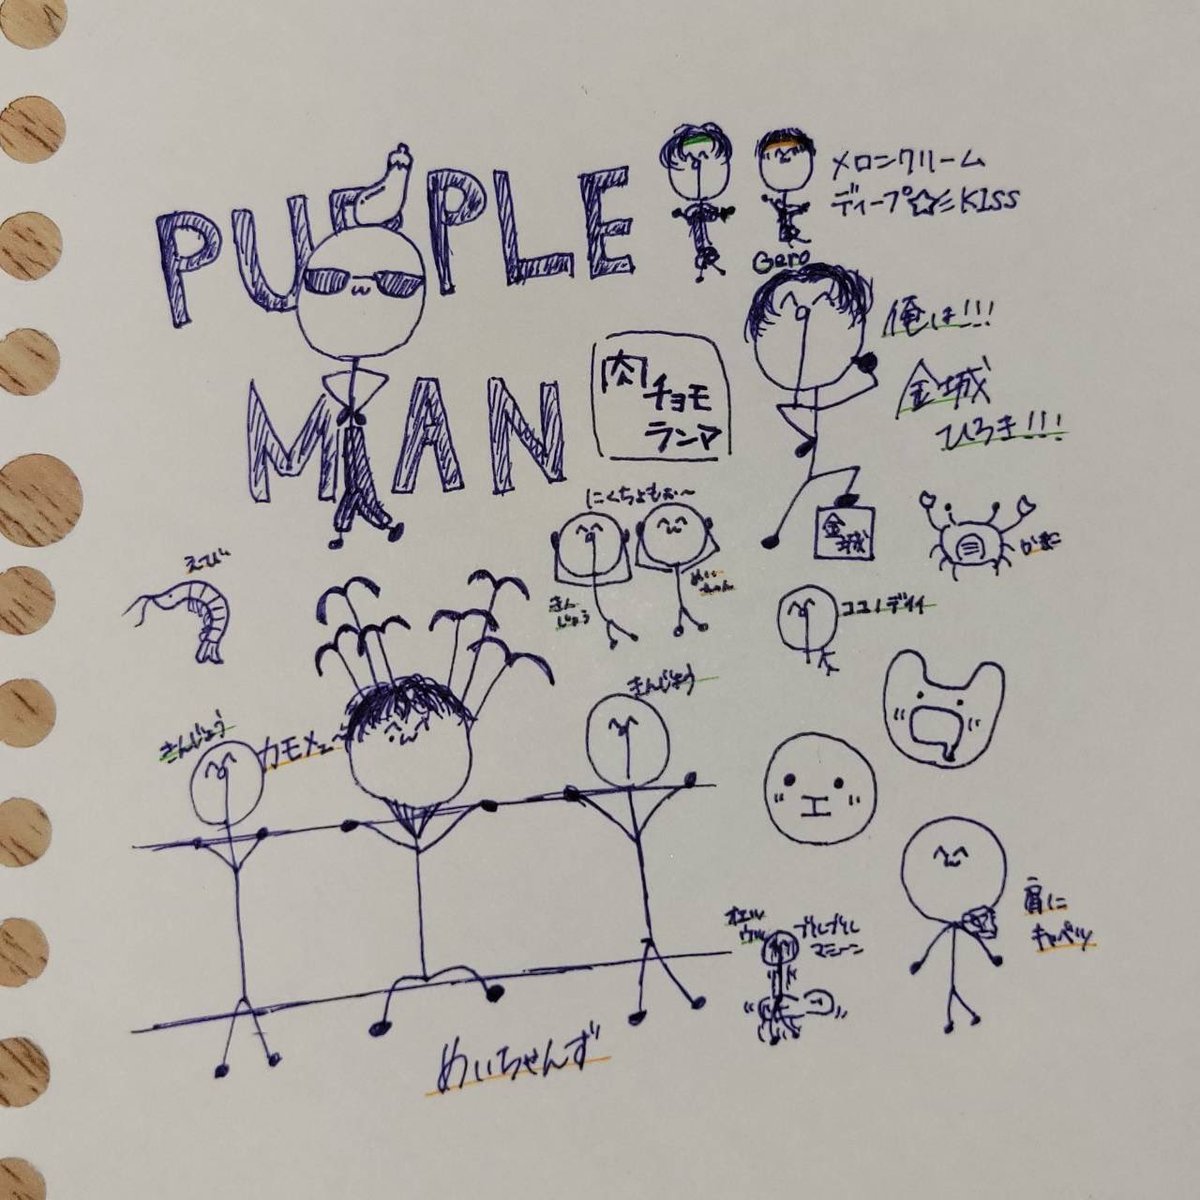 PURPLE
MAN
メロンクリーム
ディープ☆ミKISS
Gero
俺は!!!
金城
ひろき!!!
肉
チョモ
ランマ
金城
にくちょもぉ〜
きん
じょう
めい
ちゃん
かに
えび
ココノディイ
きんじょう
カモメェ〜
きんじょう
肩に
キャベツ
オエツ
ウッ
ブルブル
マシーン
めいちゃんず